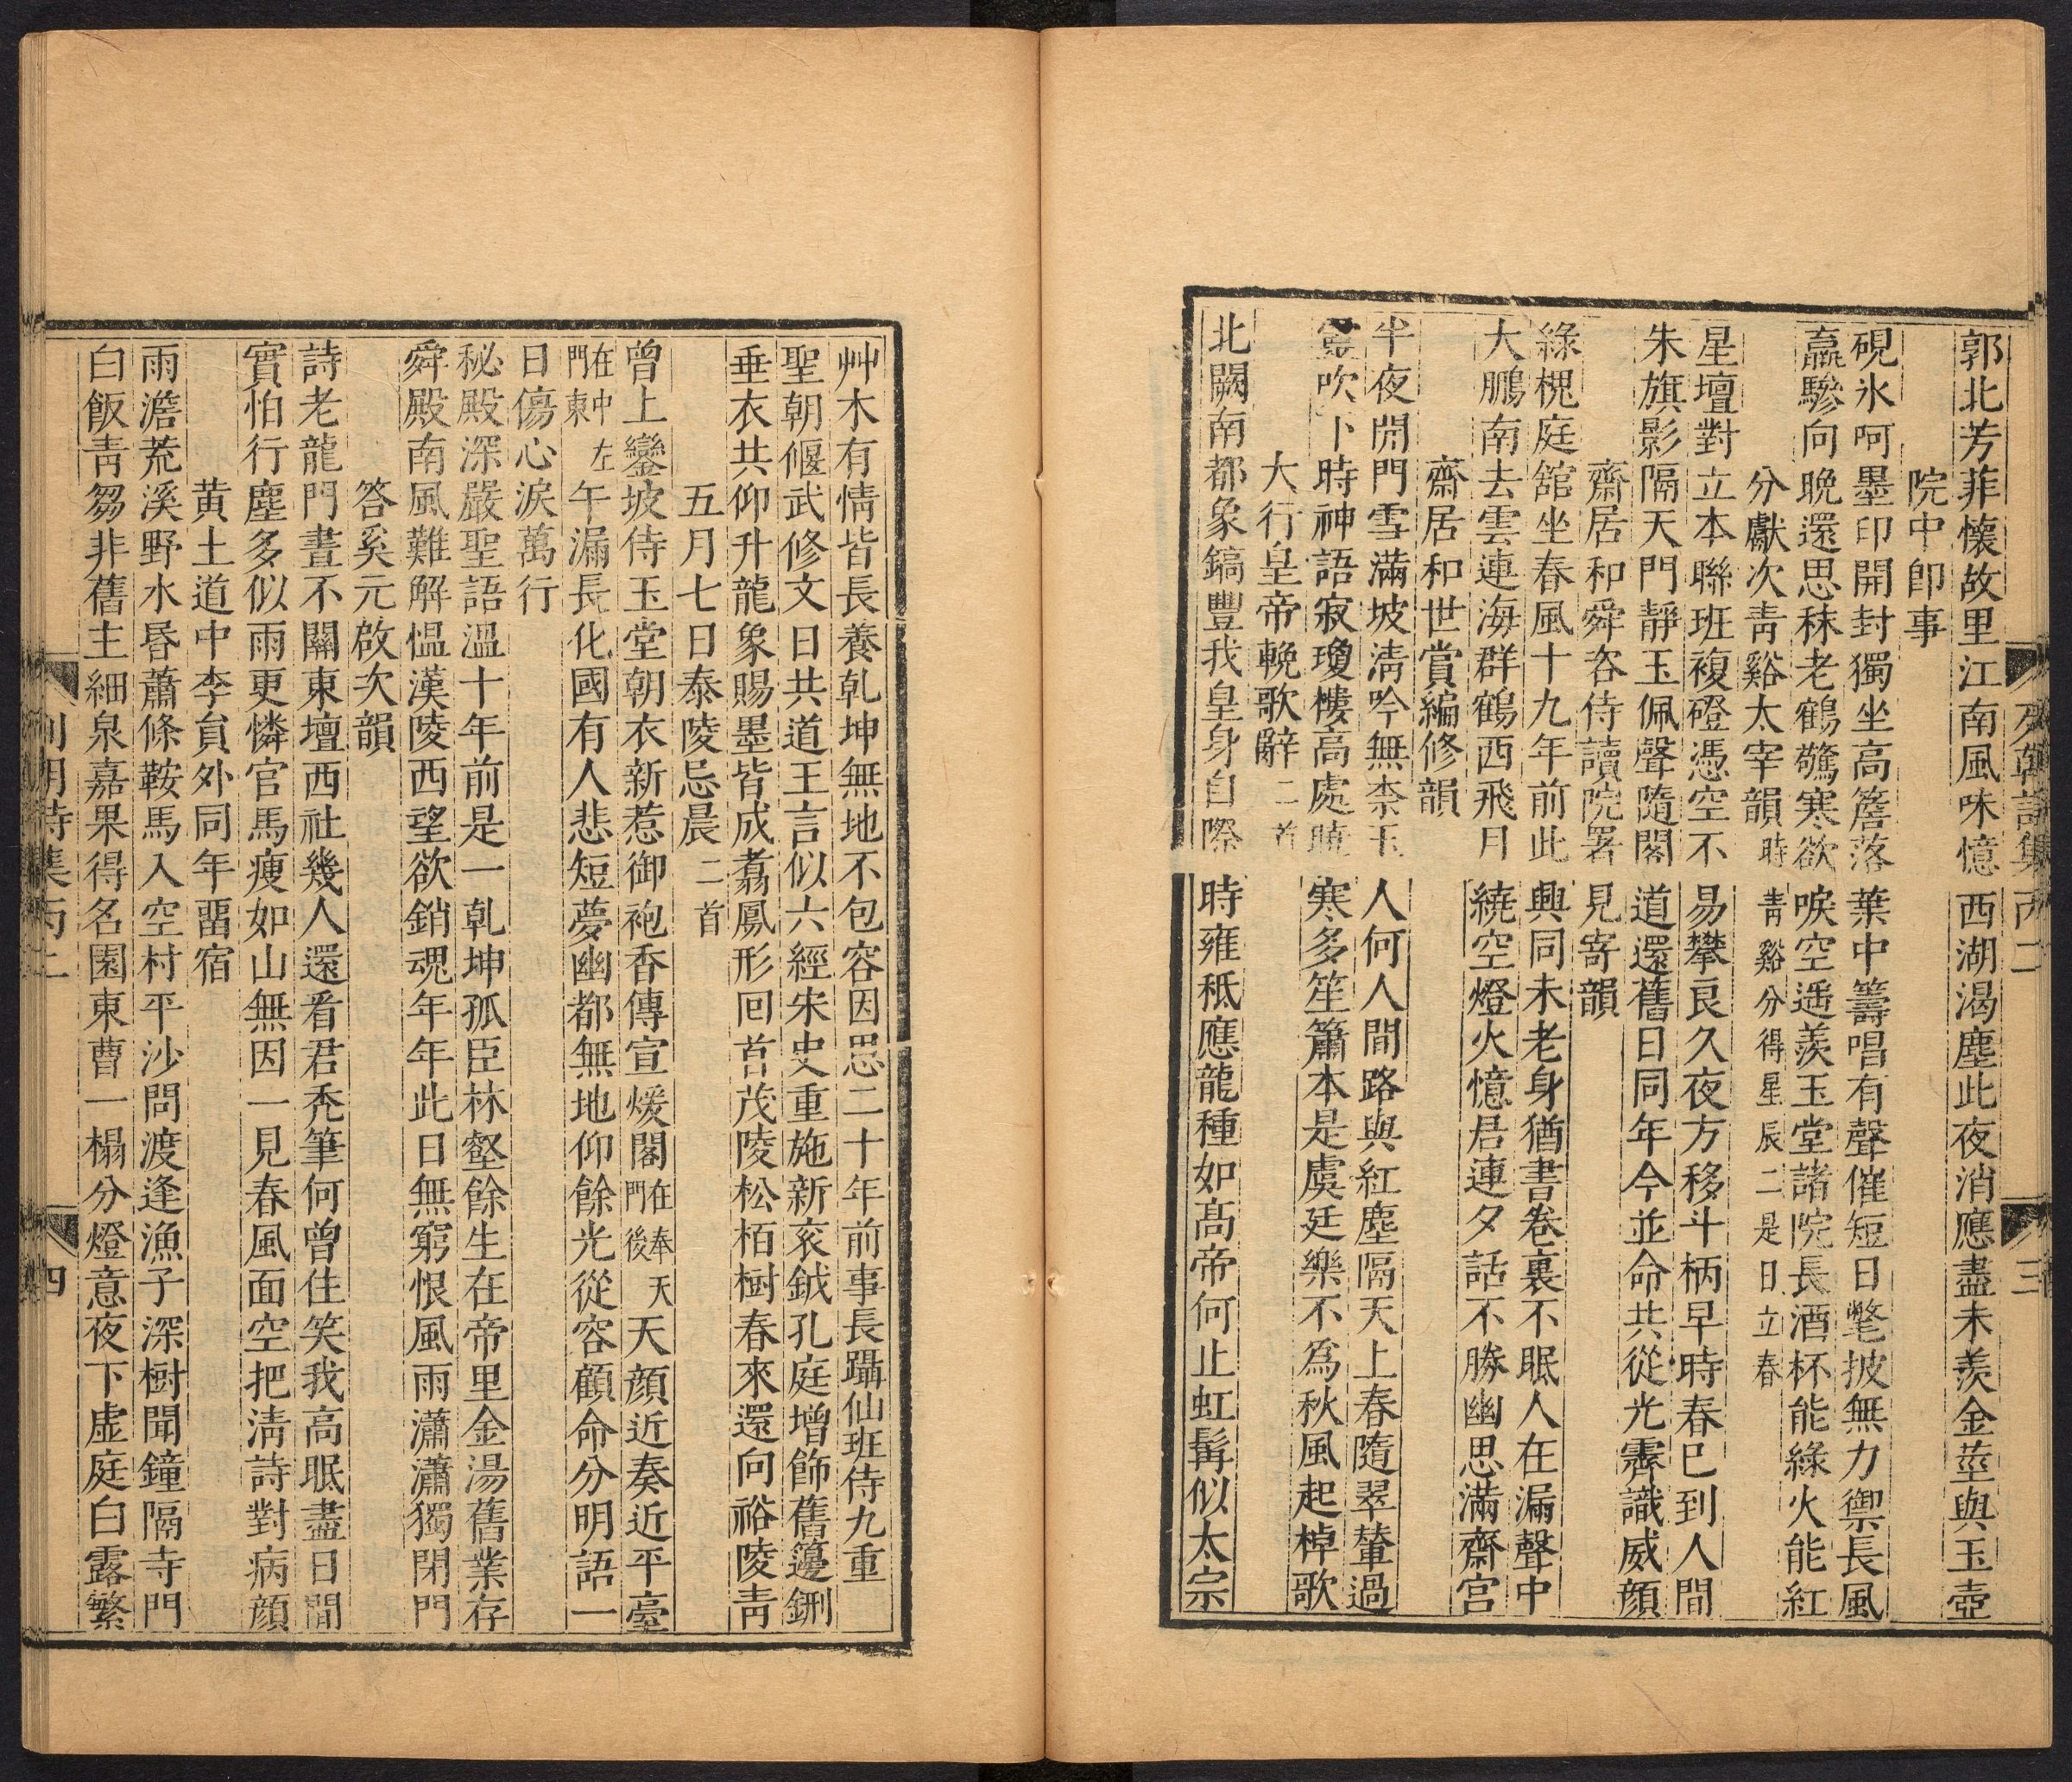 郭北芳菲懷故里江南風味憶西湖渴塵此夜消應盡未羨金莖與玉壺
院中卽事
硯氷呵墨印開封獨坐高簷落葉中籌唱有聲催短日氅披無力禦長風
羸驂向晩還思秣老鶴驚寒欲唳空遥羨玉堂諸院長酒杯能綠火能紅
分獻次靑谿太宰韻時靑谿分得星辰二是日立春
星壇對立本聯班複磴憑空不易攀良久夜方移斗柄早時春已到人間
朱旗影隔天門靜玉佩聲隨閣道還舊日同年今並命共從光霽識威顏
齋居和舜咨侍讀院署見寄韻
綠槐庭舘坐春風十九年前此興同未老身猶書卷裏不眠人在漏聲中
大鵬南去雲連海群鶴西飛月繞空燈火憶君連夕話不勝幽思滿齋宮
齋居和世賞編修韻
半夜閒門雪滿坡淸吟無柰玉人何人間路與紅塵隔天上春隨翠輦過
靈吹卜時神語寂瓊樓高處曉寒多笙簫本是虞廷樂不爲秋風起棹歌
大行皇帝輓歌辭二首
北闕南都象鎬豐我皇身自際時雍秪應龍種如髙帝何止虹髯似太宗
艸木有情皆長養乹坤無地不包容因思二十年前事長躡仙班侍九重
聖朝偃武修文日共道王言似六經宋史重施新衮鉞孔庭增飾舊籩鉶
垂衣共仰升龍象賜墨皆成翥鳳形囘首茂陵松栢樹春來還向裕陵靑
五月七日泰陵忌晨二首
曾上鑾坡侍玉堂朝衣新惹御袍香傳宣煖閣在奉天門後天顏近奏近平臺
在中左門東午漏長化國有人悲短夢幽都無地仰餘光從容顧命分明語一
日傷心淚萬行
秘殿深嚴聖語溫十年前是一乹坤孤臣林壑餘生在帝里金湯舊業存
舜殿南風難解慍漢陵西望欲銷魂年年此日無窮恨風雨瀟瀟獨閉門
答奚元啟次韻
詩老龍門晝不關東壇西社幾人還看君禿筆何曾住笑我高眠盡日閒
實怕行塵多似雨更憐官馬瘦如山無因一見春風面空把淸詩對病顏
黃土道中李貟外同年畱宿
雨澹荒溪野水昏蕭條鞍馬入空村平沙問渡逢漁子深樹聞鐘隔寺門
白飯靑芻非舊主細泉嘉果得名園東曹一榻分燈意夜下虛庭白露繁